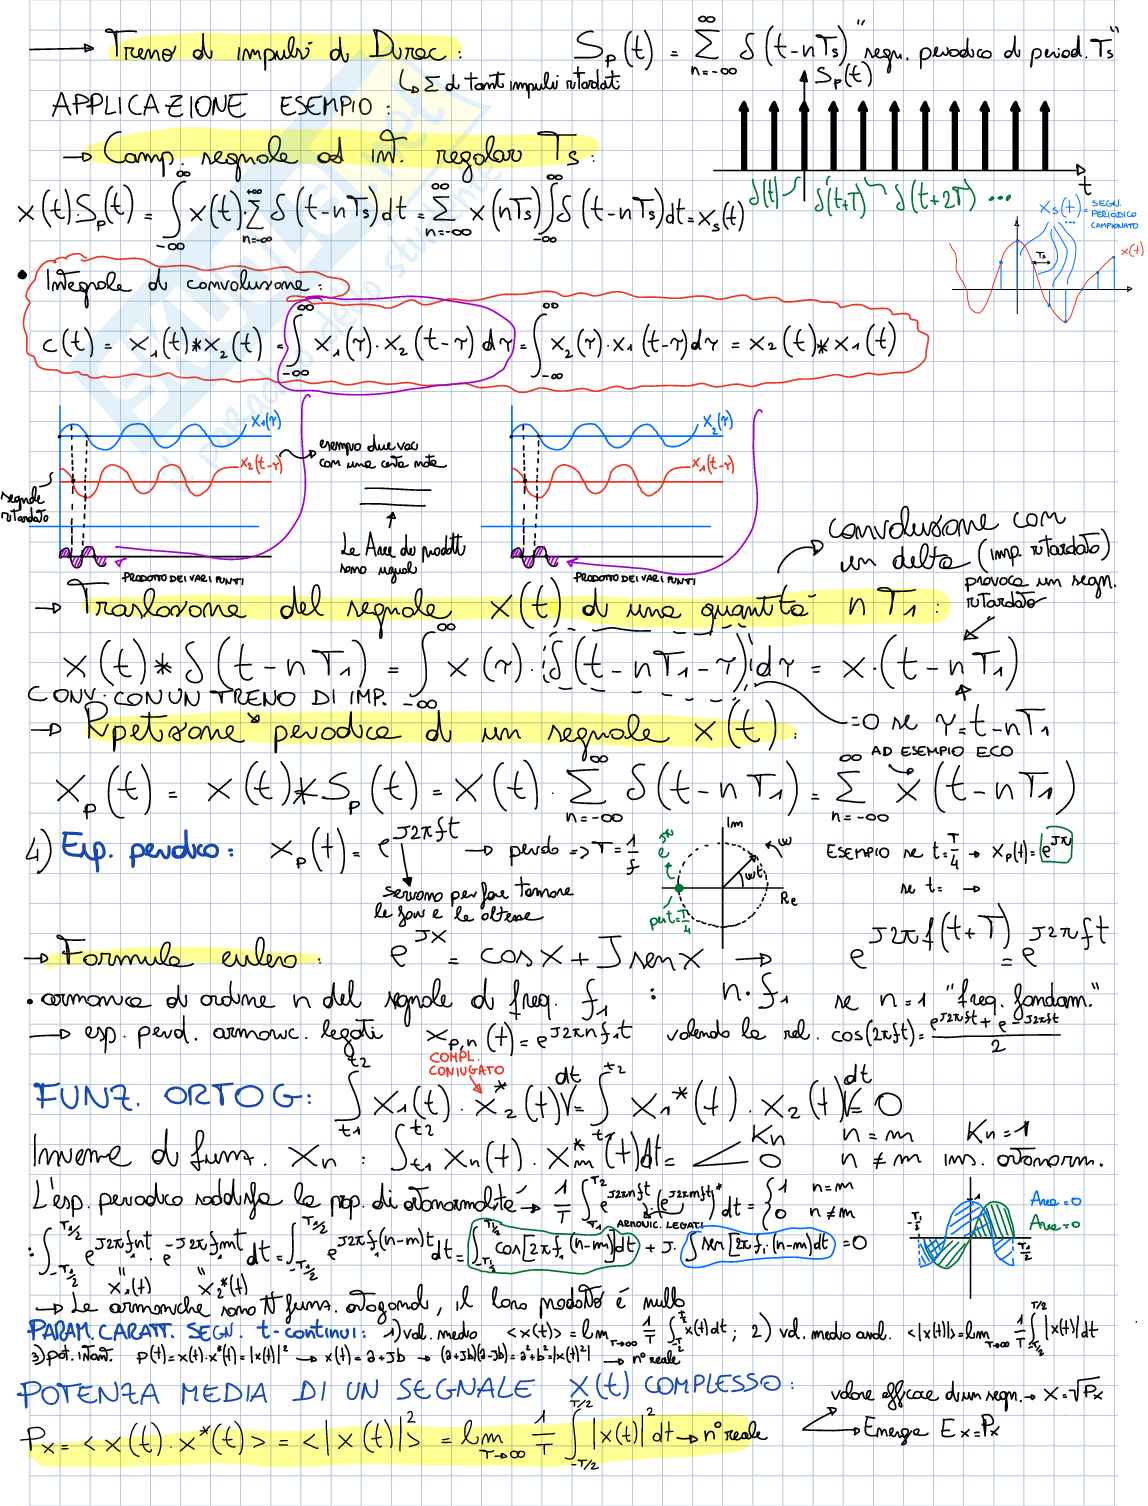 → Treno di impulsi di Dirac: Sₚ(t) = Σ_{n=-∞}^{∞} δ(t-nTs) "segn. periodico di period. Ts"
↳ Σ di tanti impulsi ritardati
Sₚ(t)
APPLICAZIONE ESEMPIO:
→ Camp. segnale ad int. regolari Ts:
t
δ(t) δ(t+T) δ(t+2T) ...
x(t)·Sₚ(t) = ∫_{-∞}^{∞} x(t)·Σ_{n=-∞}^{+∞} δ(t-nTs)dt = Σ_{n=-∞}^{∞} x(nTs)∫_{-∞}^{∞} δ(t-nTs)dt = xs(t)
xs(t) = SEGN. PERIODICO CAMPIONATO
Ts
x(t)
• Integrale di convoluzione:
c(t) = x₁(t)*x₂(t) = ∫_{-∞}^{∞} x₁(τ)·x₂(t-τ)dτ = ∫_{-∞}^{∞} x₂(τ)·x₁(t-τ)dτ = x₂(t)*x₁(t)
x₁(τ)
x₂(t-τ)
esempio due voci con una certa nota
segnale ritardato
Le Aree dei prodotti sono uguali
PRODOTTO DEI VARI PUNTI
x₂(τ)
x₁(t-τ)
PRODOTTO DEI VARI PUNTI
convoluzione con un delta (imp. ritardato)
provoca un segn. ritardato
→ Traslazione del segnale x(t) di una quantità nT₁:
x(t)*δ(t-nT₁) = ∫_{-∞}^{∞} x(τ)·δ(t-nT₁-τ)dτ = x·(t-nT₁)
CONV. CON UN TRENO DI IMP.
=0 se τ=t-nT₁
→ Ripetizione periodica di un segnale x(t):
AD ESEMPIO ECO
xₚ(t) = x(t)*Sₚ(t) = x(t)·Σ_{n=-∞}^{∞} δ(t-nT₁) = Σ_{n=-∞}^{∞} x(t-nT₁)
4) Esp. periodico: xₚ(t) = e^{J2πft} → periodo => T=1/f
servono per fare tornare le fasi e le altezze
Im
Re
ω
ωt
e^{Jπ}
per t=T/4
ESEMPIO se t=T/4 → xₚ(t)=e^{Jπ}
se t= →
→ Formula eulero: e^{Jx} = cosx + J senx → e^{J2πf(t+T)} = e^{J2πft}
• armonica di ordine n del segnale di freq. f₁ : n·f₁ se n=1 "freq. fondam."
→ esp. period. armonic. legati x_{p,n}(t) = e^{J2πnf₁t} valendo la rel. cos(2πft) = (e^{J2πft} + e^{-J2πft})/2
COMPL. CONIUGATO
FUNZ. ORTOG: ∫_{t1}^{t2} x₁(t)·x₂*(t)dt = ∫_{t1}^{t2} x₁*(t)·x₂(t)dt = 0
Insieme di funz. xₙ : ∫_{t1}^{t2} xₙ(t)·xₘ*(t)dt = Kn n=m Kn=1
0 n≠m ins. ortonorm.
L'esp. periodico soddisfa la prop. di ortonormalità → 1/T ∫ e^{J2πnft}(e^{J2πmft})* dt = {1 n=m
0 n≠m
ARMONIC. LEGATI
Area=0
Area=0
: ∫_{-T₁/2}^{T₁/2} e^{J2πf₁nt}·e^{-J2πf₁mt} dt = ∫_{-T₁/2}^{T₁/2} e^{J2πf₁(n-m)t}dt = ∫_{-T₁/2}^{T₁/2} cos[2πf₁(n-m)dt + J·∫sen[2πf₁·(n-m)dt = 0
x₁(t) x₂*(t)
→ Le armoniche sono N funz. ortogonali, il loro prodotto è nullo
PARAM. CARATT. SEGN. t-continui: 1) val. medio <x(t)> = lim_{T→∞} 1/T ∫_{-T/2}^{T/2} x(t)dt ; 2) val. medio assol. <|x(t)|> = lim_{T→∞} 1/T ∫_{-T/2}^{T/2} |x(t)|dt
3) pot. istant. p(t)=x(t)·x*(t)=|x(t)|² → x(t)=a+Jb → (a+Jb)(a-Jb)=a²+b²=|x(t)²| → n° reale
POTENZA MEDIA DI UN SEGNALE x(t) COMPLESSO:
valore efficace di un segn. → X=√Px
Px = <x(t)·x*(t)> = <|x(t)|²> = lim_{T→∞} 1/T ∫_{-T/2}^{T/2} |x(t)|² dt → n° reale
Energia Ex=Px